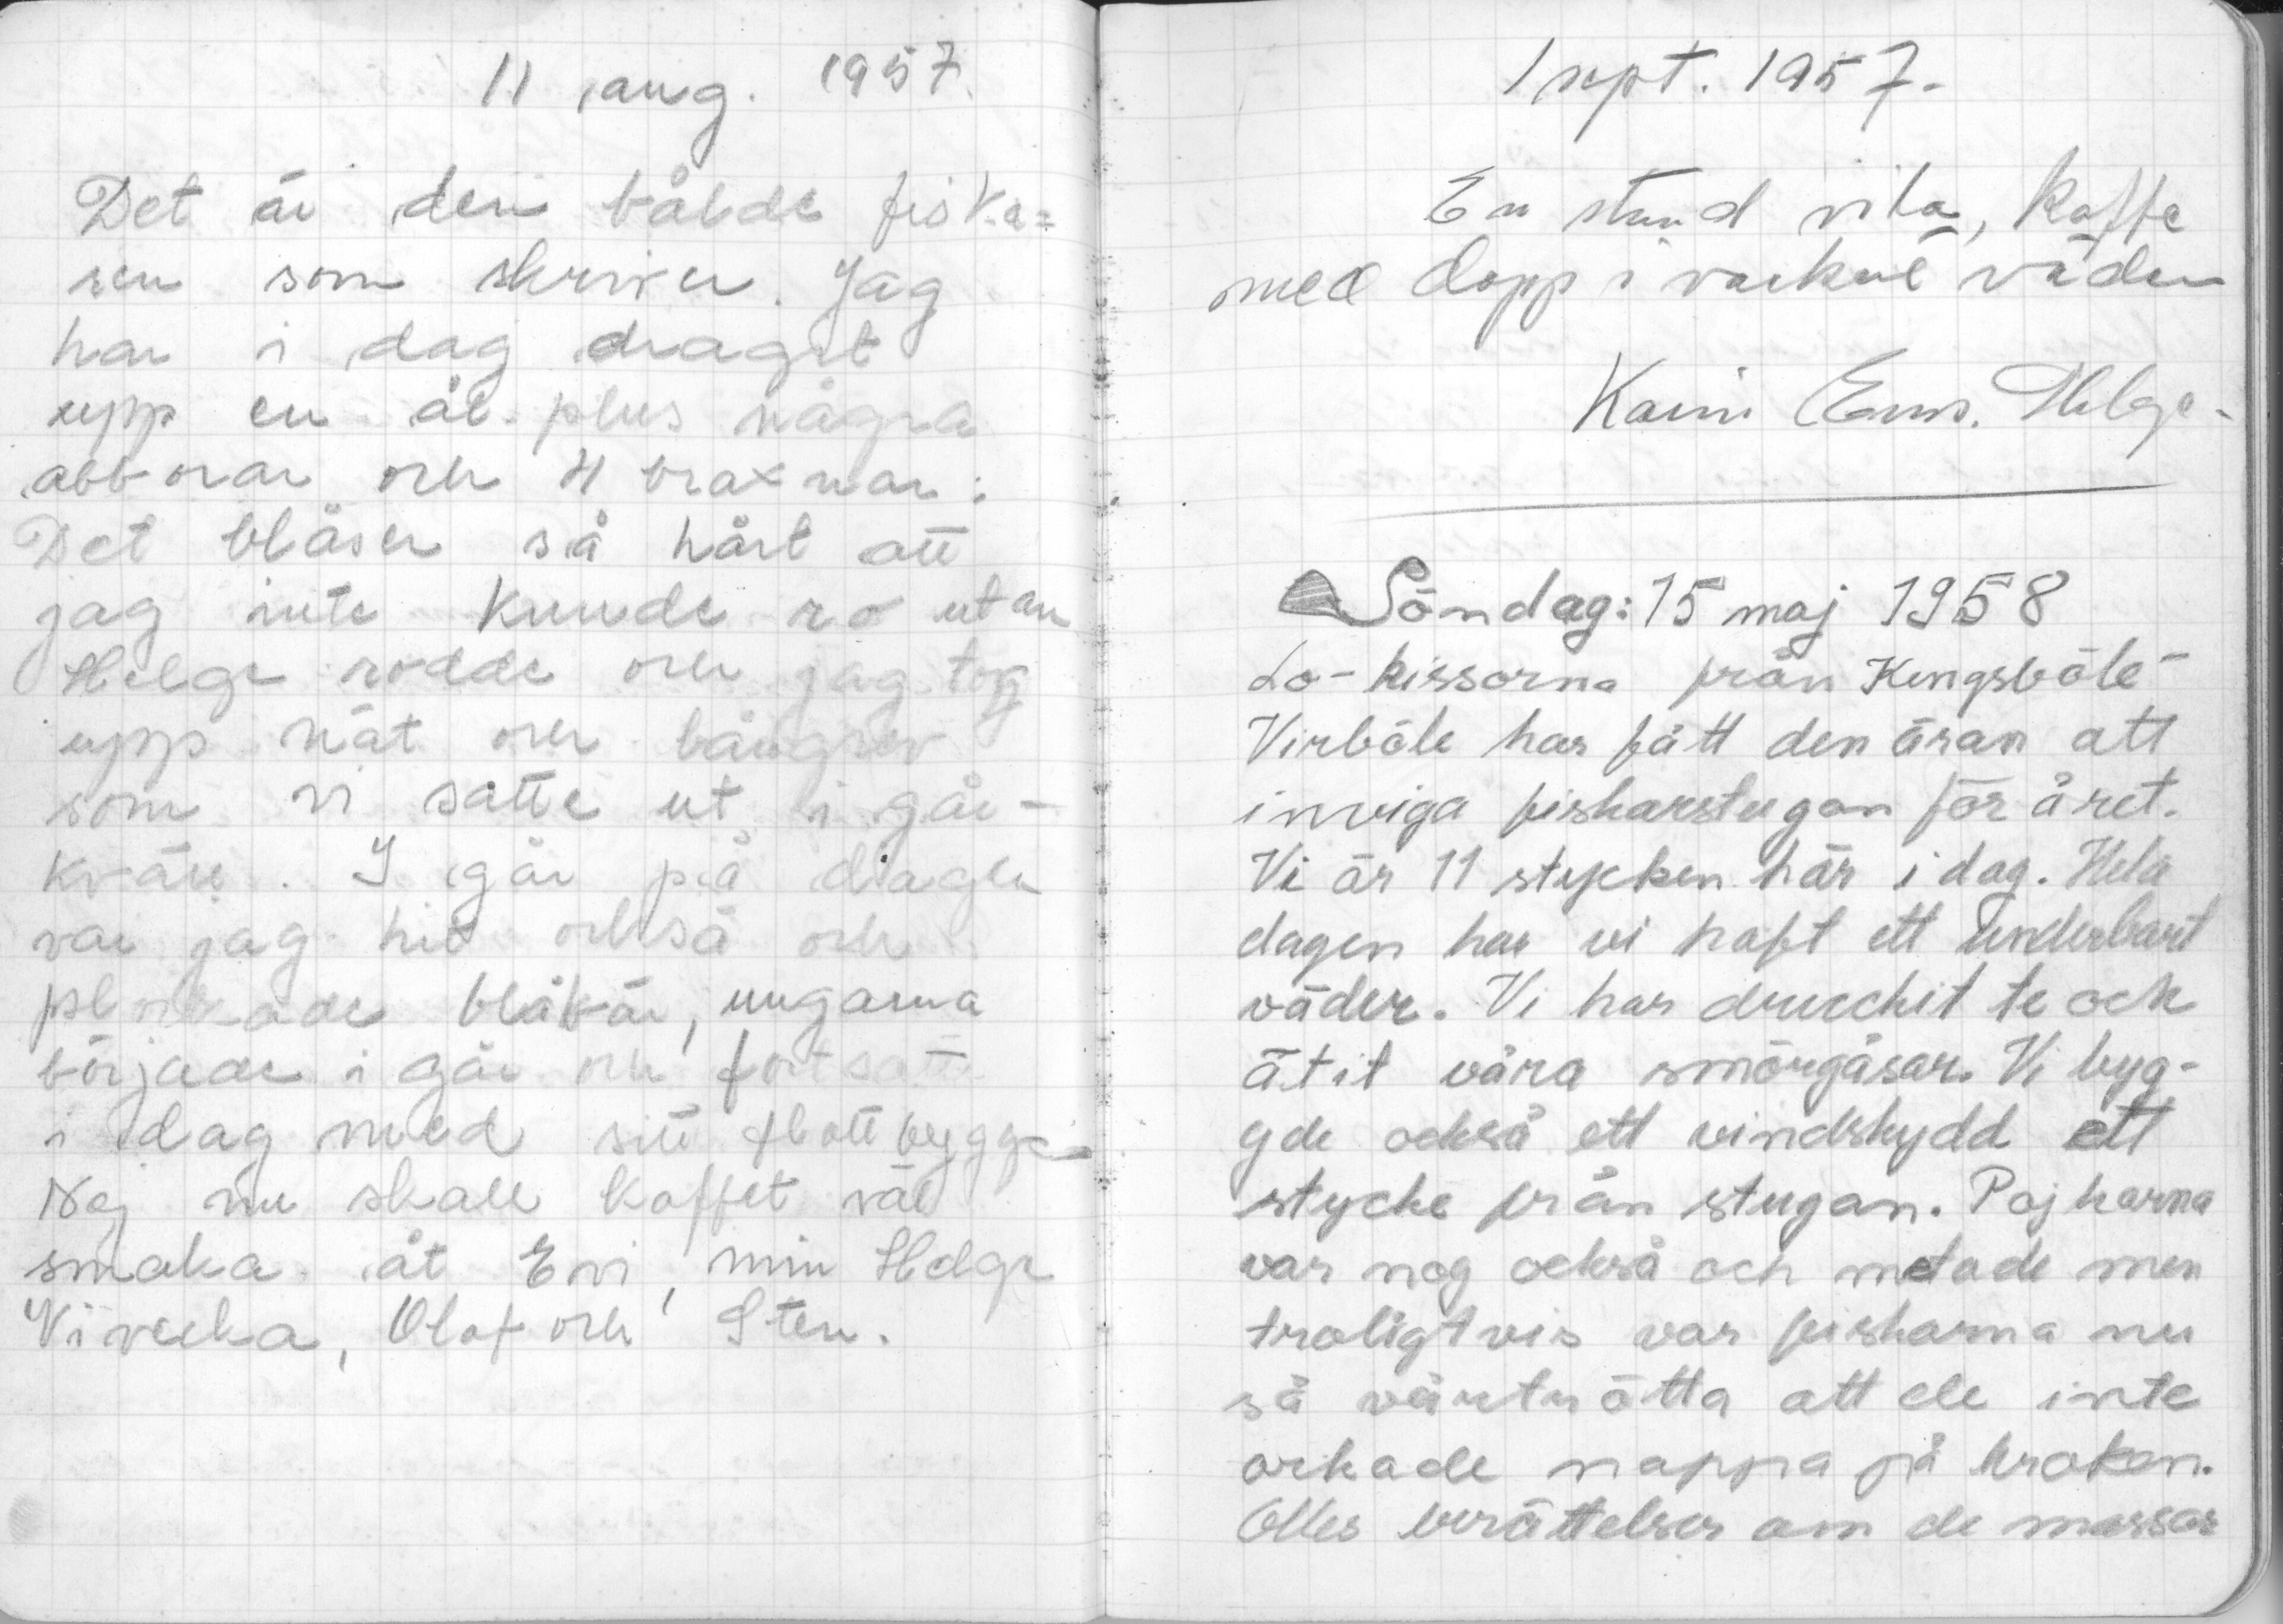 11 aug. 1957.
Det är den bålde fiska=
ren som skriver. Jag
har i dag dragit
upp en ål plus några
abborar och 4 braxnar.
Det blåser så hårt att
jag inte kunde ro utan
Helge rodde och jag tog
upp nät och långrev
som vi satte ut i går-
kväll. I går på dagen
var jag hit också och
plockade blåbär, ungarna
började i går och fortsatte
i dag med sitt flottbygge
Nej nu skall kaffet väl
smaka åt Evi, min Helge
Vivecka, Olof och Sten.
1 sept. 1957.
En stund vila, kaffe
med dopp i vackert väder
Karin Helge
Söndag: 15 maj 1958
Lo-kissorna från Kungsböle-
Virböle har fått den äran att
inviga fiskarstugan för året.
Vi är 11 stycken här i dag. Hela
dagen har vi haft ett underbart
väder. Vi har druckit te och
ätit våra smörgåsar. Vi byg-
gde också ett vindskydd ett
stycke från stugan. Pojkarna
var nog också och metade men
troligtvis var fiskarna nu
så vårtrötta att de inte
orkade nappa på kroken.
Olles berättelser om de massor